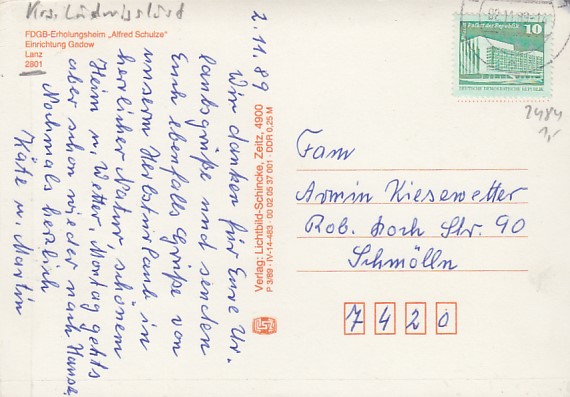 Krs. Ludwigslust
FDGB-Erholungsheim „Alfred Schulze"
Einrichtung Gadow
Lanz
2801
2.11.89
Wir danken für Eure Ur-
laubsgrüße und senden
Euch ebenfalls Grüße von
unserm Herbsturlaub in
herrlicher Natur, schönem
Heim u. Wetter. Montag gehts
aber schon wieder nach Hause.
Nochmals herzlich
Käte u. Martin
Verlag: Lichtbild-Schincke, Zeitz, 4900
P 3/89 · IV-14-483 · 00 02 05 37 001 · DDR 0,25 M
02.11.89
Palast der Republik
10
DEUTSCHE DEMOKRATISCHE REPUBLIK
2484
1,-
Fam
Armin Kiesewetter
Rob. Koch Str. 90
Schmölln
7420